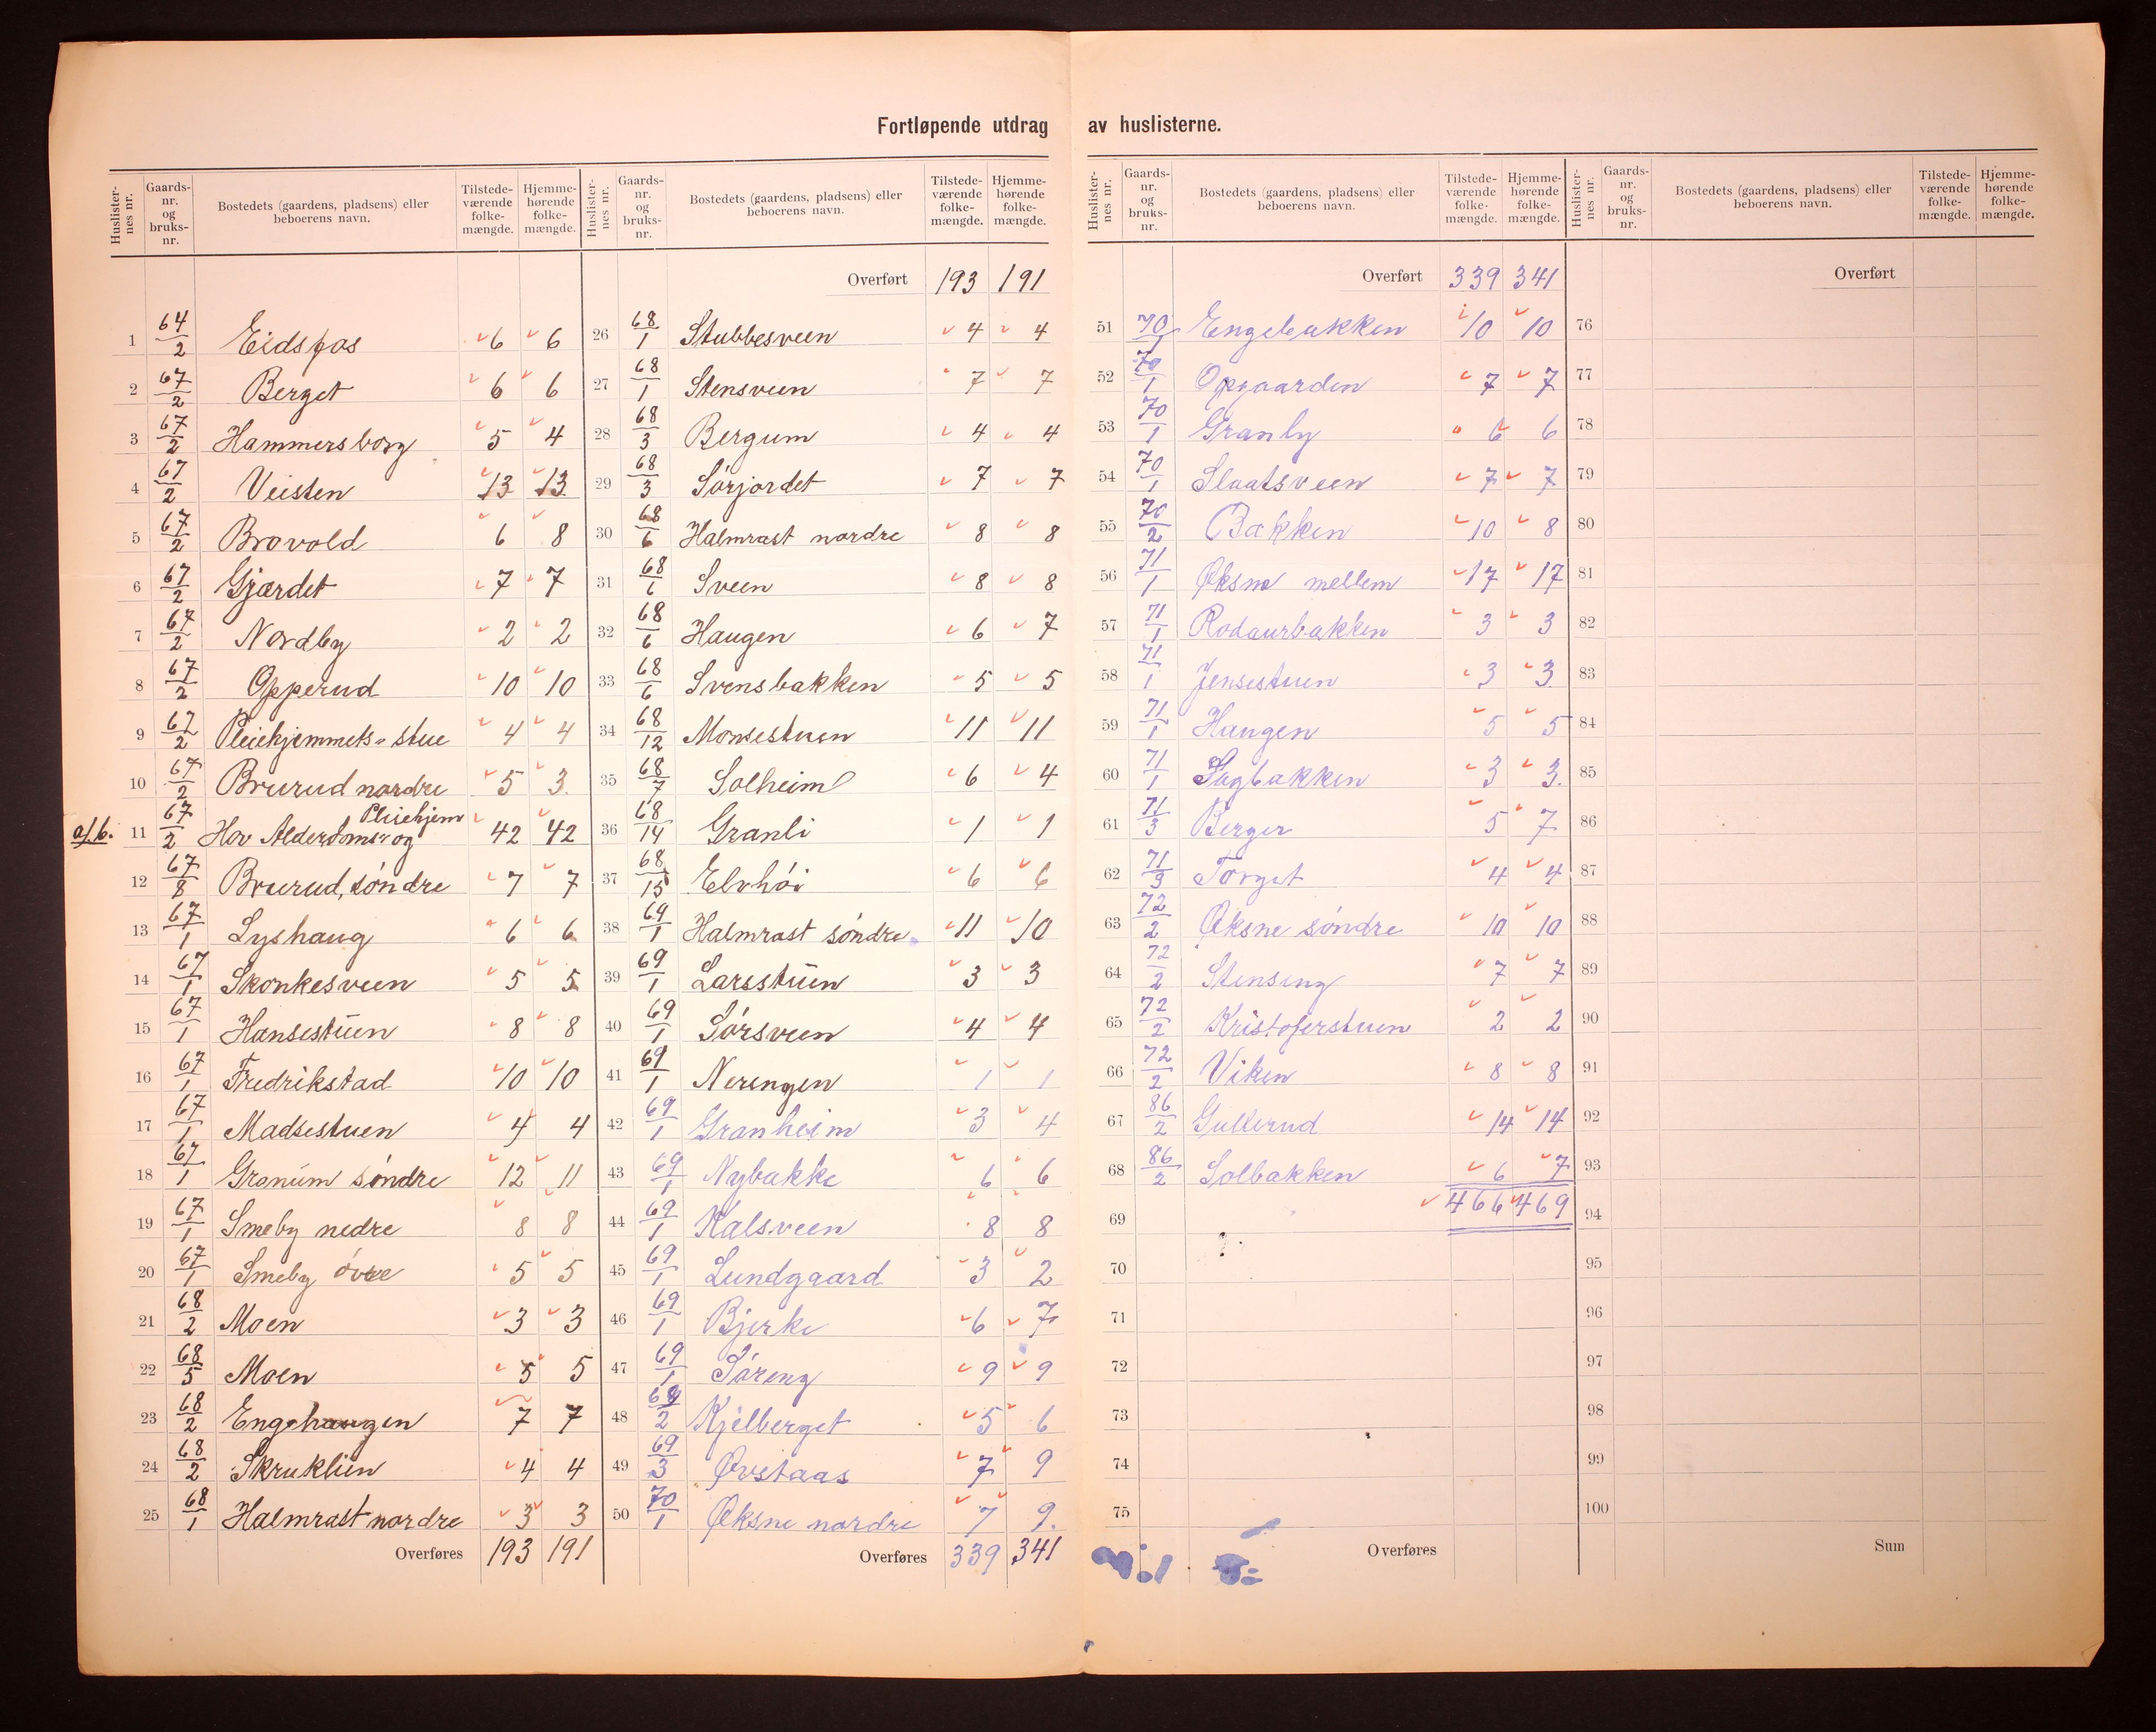 Fortløpende utdrag av huslisterne.
Huslister-nes nr. | Gaards-nr. og bruks-nr. | Bostedets (gaardens, pladsens) eller beboerens navn. | Tilstede-værende folke-mængde. | Hjemme-hørende folke-mængde.
1 64/2 Eidsfos 6 6
2 67/2 Berget 6 6
3 67/2 Hammersborg 5 4
4 67/2 Veisten 13 13
5 67/2 Brovold 6 8
6 67/2 Gjærdet 7 7
7 67/2 Nordby 2 2
8 67/2 Opperud 10 10
9 67/2 Pleiehjemmets-stue 4 4
10 67/2 Brurud nordre 5 3
a/b. 11 67/2 Hov Alderdoms- og Pleiehjem 42 42
12 67/8 Brurud, søndre 7 7
13 67/1 Lyshaug 6 6
14 67/1 Skonkesveen 5 5
15 67/1 Hansestuen 8 8
16 67/1 Fredrikstad 10 10
17 67/1 Madsestuen 4 4
18 67/1 Granum søndre 12 11
19 67/1 Smeby nedre 8 8
20 67/1 Smeby øvre 5 5
21 68/2 Moen 3 3
22 68/5 Moen 5 5
23 68/2 Engehaugen 7 7
24 68/2 Skruklien 4 4
25 68/1 Halmrast nordre 3 3
Overføres 193 191
Huslister-nes nr. | Gaards-nr. og bruks-nr. | Bostedets (gaardens, pladsens) eller beboerens navn. | Tilstede-værende folke-mængde. | Hjemme-hørende folke-mængde.
Overført 193 191
26 68/1 Stubbesveen 4 4
27 68/1 Stensveen 7 7
28 68/3 Bergum 4 4
29 68/3 Sørjordet 7 7
30 68/6 Halmrast nordre 8 8
31 68/6 Sveen 8 8
32 68/6 Haugen 6 7
33 68/6 Svensbakken 5 5
34 68/12 Monsestuen 11 11
35 68/7 Solheim 6 4
36 68/14 Granli 1 1
37 68/15 Elvhøi 6 6
38 69/1 Halmrast søndre 11 10
39 69/1 Larsstuen 3 3
40 69/1 Sørsveen 4 4
41 69/1 Nerengen 1 1
42 69/1 Granheim 3 4
43 69/1 Nybakke 6 6
44 69/1 Kalsveen 8 8
45 69/1 Lundgaard 3 2
46 69/1 Bjerke 6 7
47 69/1 Søreng 9 9
48 69/2 Kjelberget 5 6
49 69/3 Øvstaas 7 9
50 70/1 Øksne nordre 7 9.
Overføres 339 341
Huslister-nes nr. | Gaards-nr. og bruks-nr. | Bostedets (gaardens, pladsens) eller beboerens navn. | Tilstede-værende folke-mængde. | Hjemme-hørende folke-mængde.
Overført 339 341
51 70/1 Engebakken 10 10
52 70/1 Opgaarden 7 7
53 70/1 Granly 6 6
54 70/1 Slaatsveen 7 7
55 70/2 Bakken 10 8
56 71/1 Øksne mellem 17 17
57 71/1 Rodaurbakken 3 3
58 71/1 Jensestuen 3 3.
59 71/1 Haugen 5 5
60 71/1 Sagbakken 3 3.
61 71/3 Berger 5 7
62 71/3 Torget 4 4
63 72/2 Øksne søndre 10 10
64 72/2 Stenseng 7 7
65 72/2 Kristoferstuen 2 2
66 72/2 Viken 8 8
67 86/2 Gullerud 14 14
68 86/2 Solbakken 6 7
69 466 469
70
71
72
73
74
75
Overføres
Huslister-nes nr. | Gaards-nr. og bruks-nr. | Bostedets (gaardens, pladsens) eller beboerens navn. | Tilstede-værende folke-mængde. | Hjemme-hørende folke-mængde.
Overført
76
77
78
79
80
81
82
83
84
85
86
87
88
89
90
91
92
93
94
95
96
97
98
99
100
Sum